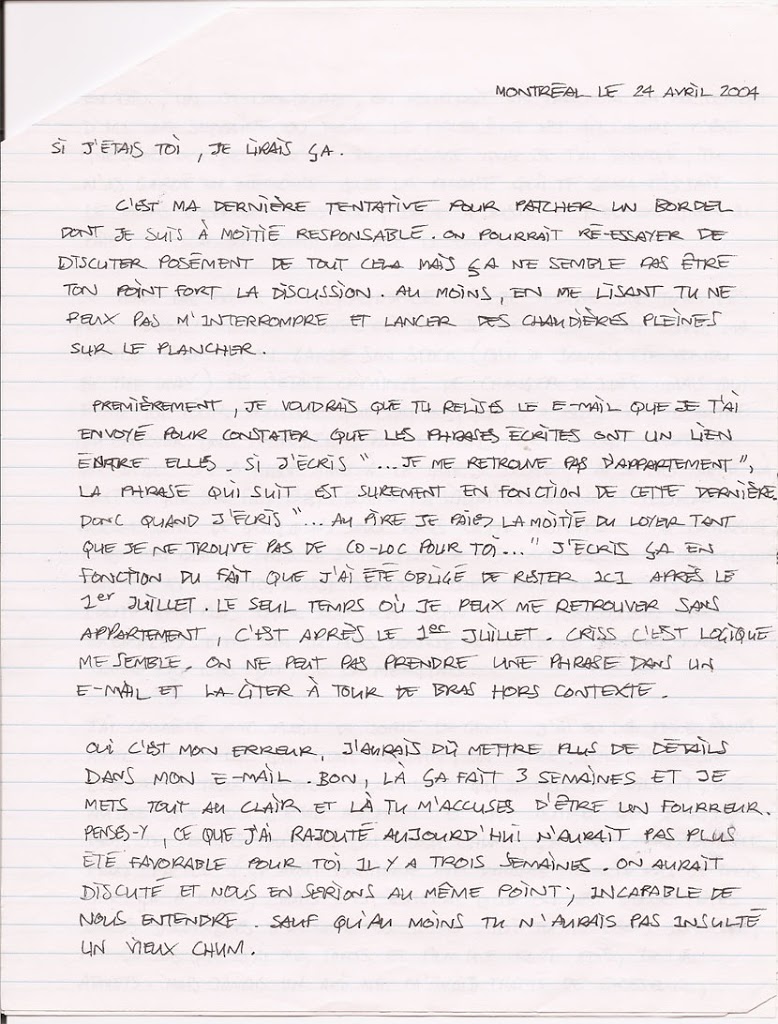 MONTRÉAL LE 24 AVRIL 2004
SI J'ÉTAIS TOI, JE LIRAIS ÇA.
C'EST MA DERNIÈRE TENTATIVE POUR PATCHER UN BORDEL
DONT JE SUIS À MOITIÉ RESPONSABLE. ON POURRAIT RÉ-ESSAYER DE
DISCUTER POSÉMENT DE TOUT CELA MAIS ÇA NE SEMBLE PAS ÊTRE
TON POINT FORT LA DISCUSSION. AU MOINS, EN ME LISANT TU NE
PEUX PAS M'INTERROMPRE ET LANCER DES CHAUDIÈRES PLEINES
SUR LE PLANCHER.
PREMIÈREMENT, JE VOUDRAIS QUE TU RELISES LE E-MAIL QUE JE T'AI
ENVOYÉ POUR CONSTATER QUE LES PHRASES ÉCRITES ONT UN LIEN
ENTRE ELLES. SI J'ÉCRIS "...JE ME RETROUVE PAS D'APPARTEMENT",
LA PHRASE QUI SUIT EST SUREMENT EN FONCTION DE CETTE DERNIÈRE.
DONC QUAND J'ÉCRIS "... AU PIRE JE PAIES LA MOITIÉ DU LOYER TANT
QUE JE NE TROUVE PAS DE CO-LOC POUR TOI..." J'ÉCRIS ÇA EN
FONCTION DU FAIT QUE J'AI ÉTÉ OBLIGÉ DE RESTER ICI APRÈS LE
1er JUILLET. LE SEUL TEMPS OÙ JE PEUX ME RETROUVER SANS
APPARTEMENT, C'EST APRÈS LE 1er JUILLET. CRISS C'EST LOGIQUE
ME SEMBLE. ON NE PEUT PAS PRENDRE UNE PHRASE DANS UN
E-MAIL ET LA CITER À TOUR DE BRAS HORS CONTEXTE.
OUI C'EST MON ERREUR. J'AURAIS DÛ METTRE PLUS DE DÉTAILS
DANS MON E-MAIL. BON, LÀ ÇA FAIT 3 SEMAINES ET JE
METS TOUT AU CLAIR ET LÀ TU M'ACCUSES D'ÊTRE UN FOURREUR.
PENSES-Y, CE QUE J'AI RAJOUTÉ AUJOURD'HUI N'AURAIT PAS PLUS
ÉTÉ FAVORABLE POUR TOI IL Y A TROIS SEMAINES. ON AURAIT
DISCUTÉ ET NOUS EN SERIONS AU MÊME POINT; INCAPABLE DE
NOUS ENTENDRE. SAUF QU'AU MOINS TU N'AURAIS PAS INSULTÉ
UN VIEUX CHUM.